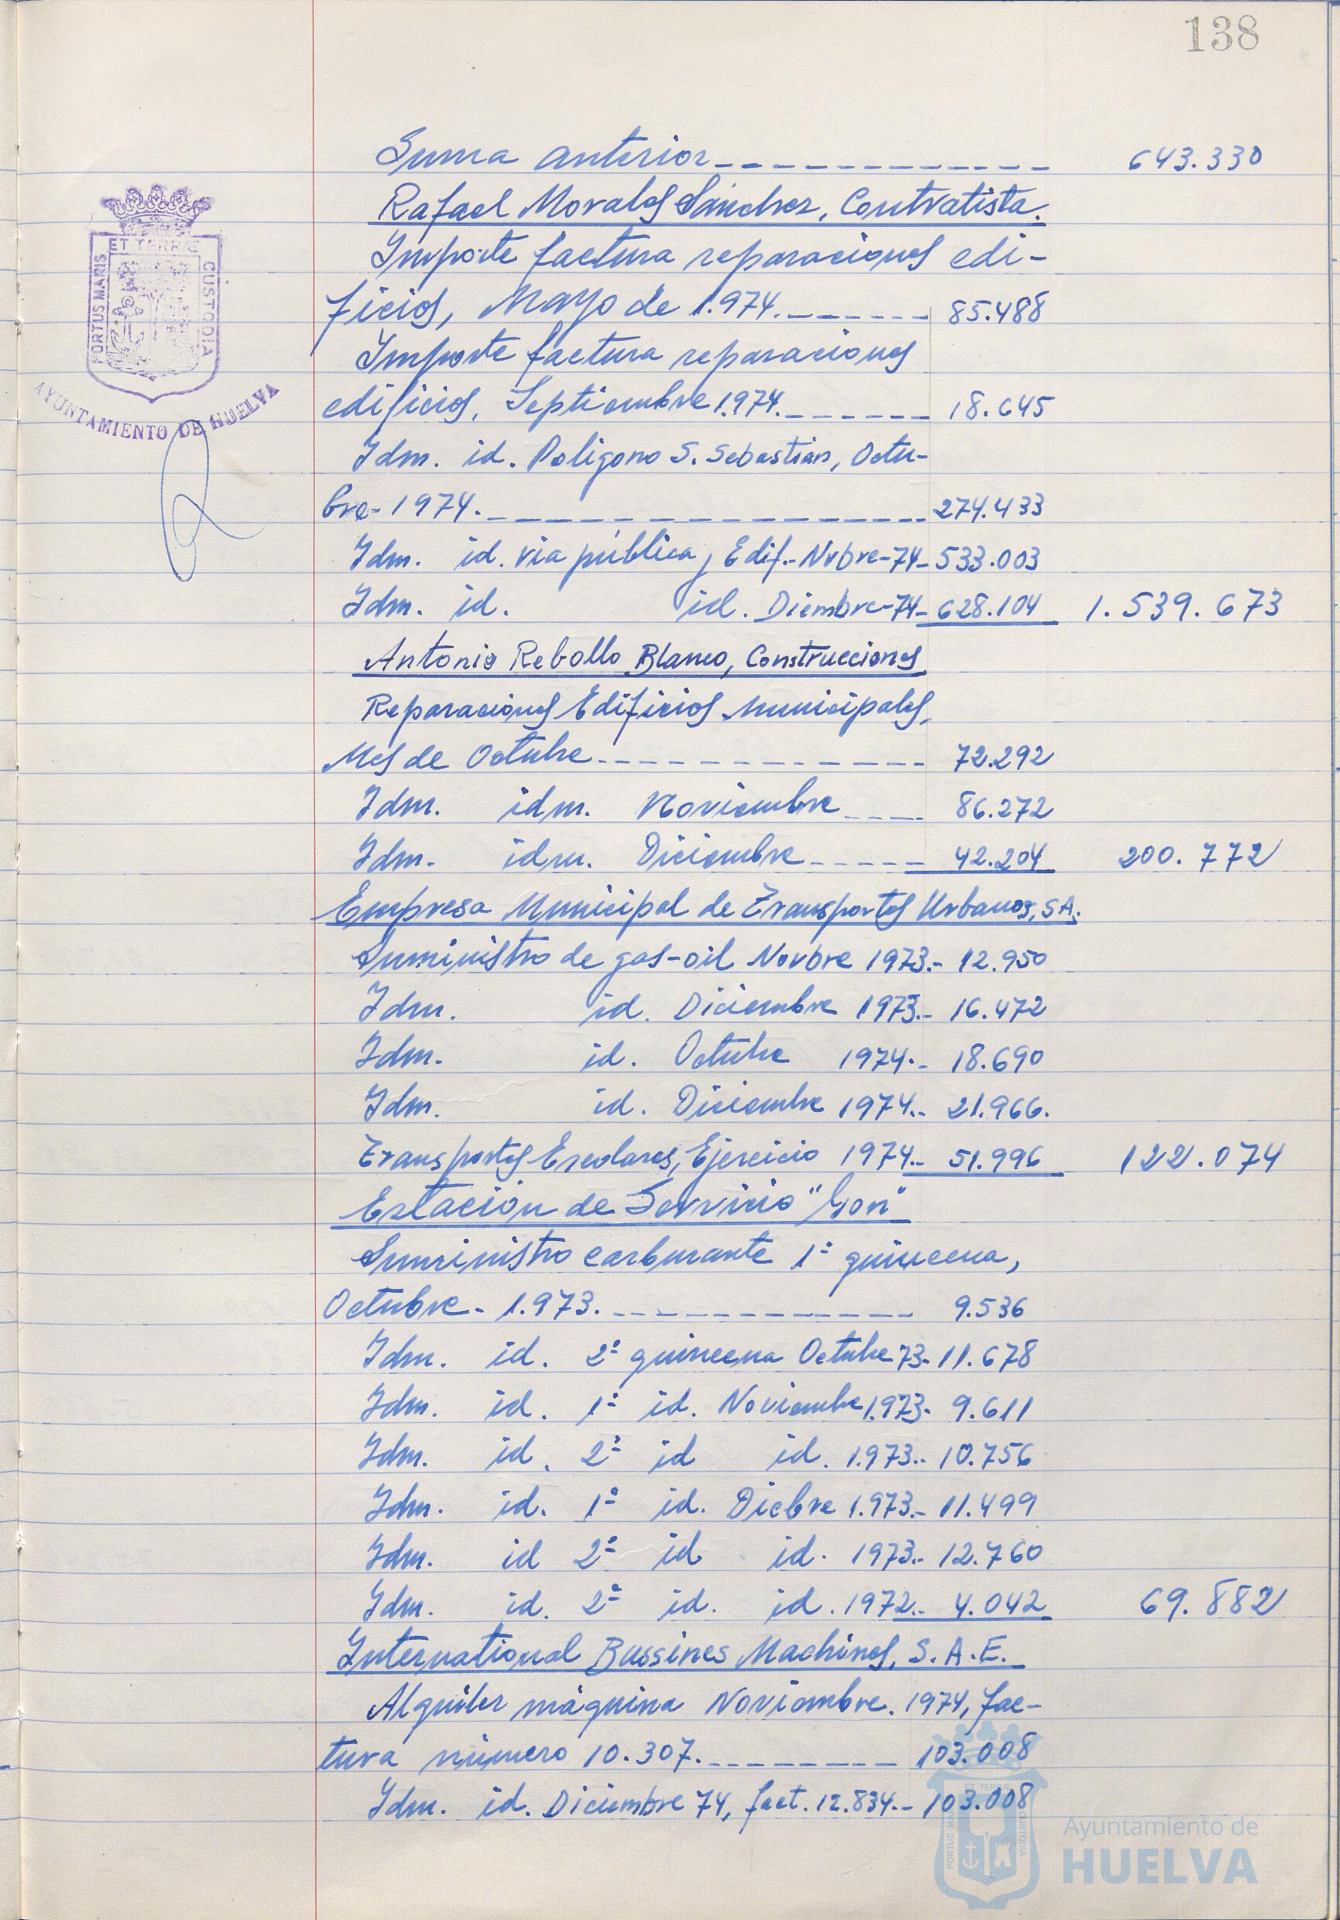 138
Suma anterior 643.330
Rafael Morales Sánchez, Contratista.
Importe factura reparaciones edi-
ficios, Mayo de 1.974. 85.488
Importe factura reparaciones
edificios, Septiembre 1.974. 18.645
Idm. id. Poligono S. Sebastian, Octu-
bre-1974. 274.433
Idm. id. via pública y Edif.-Nvbre-74- 533.003
Idm. id. id. Diembre-74- 628.104 1.539.673
Antonio Rebollo Blanco, Construcciones
Reparaciones Edificios Municipales,
Mes de Octubre 72.292
Idm. idm. Noviembre 86.272
Idm. idm. Diciembre 42.204 200.772
Empresa Municipal de Transportes Urbanos, S.A.
Suministro de gas-oil Novbre 1973.- 12.950
Idm. id. Diciembre 1973.- 16.472
Idm. id. Octubre 1974.- 18.690
Idm. id. Diciembre 1974.- 21.966.
Transportes Escolares, Ejercicio 1974.- 51.996 122.074
Estación de Servicio "Gon"
Suministro carburante 1ª quincena,
Octubre- 1.973. 9.536
Idm. id. 2ª quincena Octubre 73- 11.678
Idm. id. 1ª id. Noviembre 1.973- 9.611
Idm. id. 2ª id id. 1.973.- 10.756
Idm. id. 1ª id. Dicbre 1.973.- 11.499
Idm. id 2ª id id. 1973.- 12.760
Idm. id. 2ª id. id. 1972.- 4.042 69.882
International Bussines Machines, S.A.E.
Alquiler máquina Noviembre. 1974, fac-
tura número 10.307. 103.008
Idm. id. Diciembre 74, fact. 12.834.- 103.008
PORTUS MARIS ET TERRAE CUSTODIA
AYUNTAMIENTO DE HUELVA
Ayuntamiento de
HUELVA